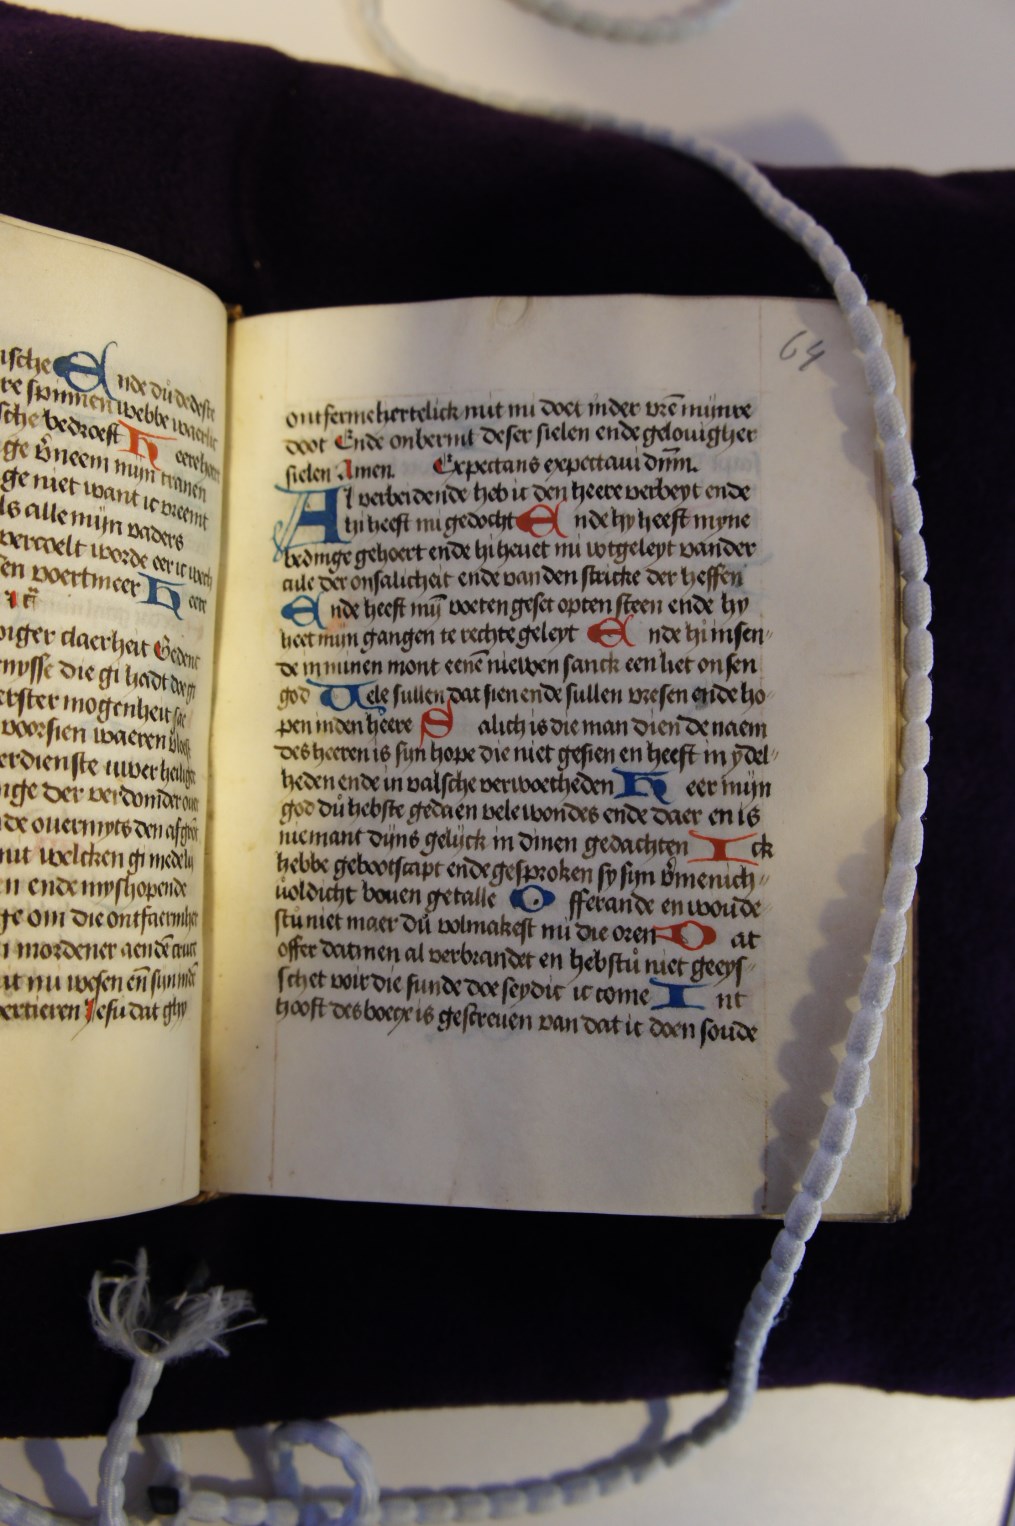 nde du dedeste
re spinnen webbe
sche bedroeft H eere
neem mijn tranen
ge niet want ic vreemt
ls alle mijn vaders
vercoelt worde eer ic
en voertmeer H eere
claerheit Gedenc
nysse die gi hadt
erster mogenheit
voorsien waeren
erdienste uwer
nge der verdomder
de overmyts den
mit welcken gi
n ende myshopende
ge om die ontfaermher
mordener aendē cruce
wesen eñ
Jesu dat ghy
64
ontfermehertelick mit mi doet inder vrē mijnre
doot Ende onbermt deser sielen ende gelouigher
sielen Amen. Expectans expectaui dñm.
Al verbeidende heb ic den heere verbeyt ende
hi heeft mi gedocht Ende hy heeft myne
bedinge gehoert ende hi heuet mi wtgeleyt vander
cule der onsalicheit ende van den stricke der heffen
Ende heeft mij̄ voeten geset opten steen ende hy
heet mijn gangen te rechte geleyt Ende hi insen
de in minen mont eenē niewen sanck een liet onsen
god Uele sullen dat sien ende sullen vresen ende ho
pen inden heere Salich is die man dien de naem
des heeren is sijn hope die niet gesien en heeft in ydel
heden ende in valsche verwoetheden Heer mijn
god du hebste gedaen vele wondes ende daer en is
niemant dijns gelijck in dinen gedachten Ick
hebbe gebootscapt ende gesproken sy sijn v̄menich
uoldicht bouen getalle Offerande en woude
stu niet maer du volmakest mi die oren Dat
offer datmen al verbrandet en hebstu niet geeys
schet voir die sunde doe seydic ic come Int
hooft des boecx is gescreuen van dat ic doen soude